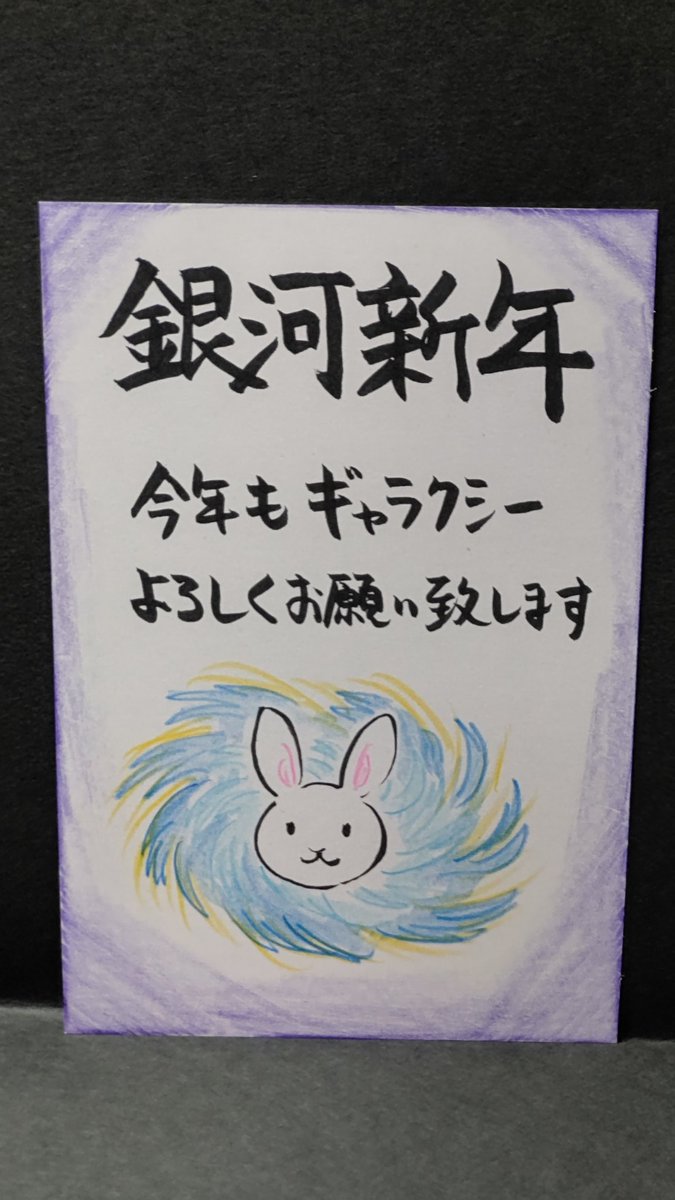 銀河新年
今年もギャラクシー
よろしくお願い致します